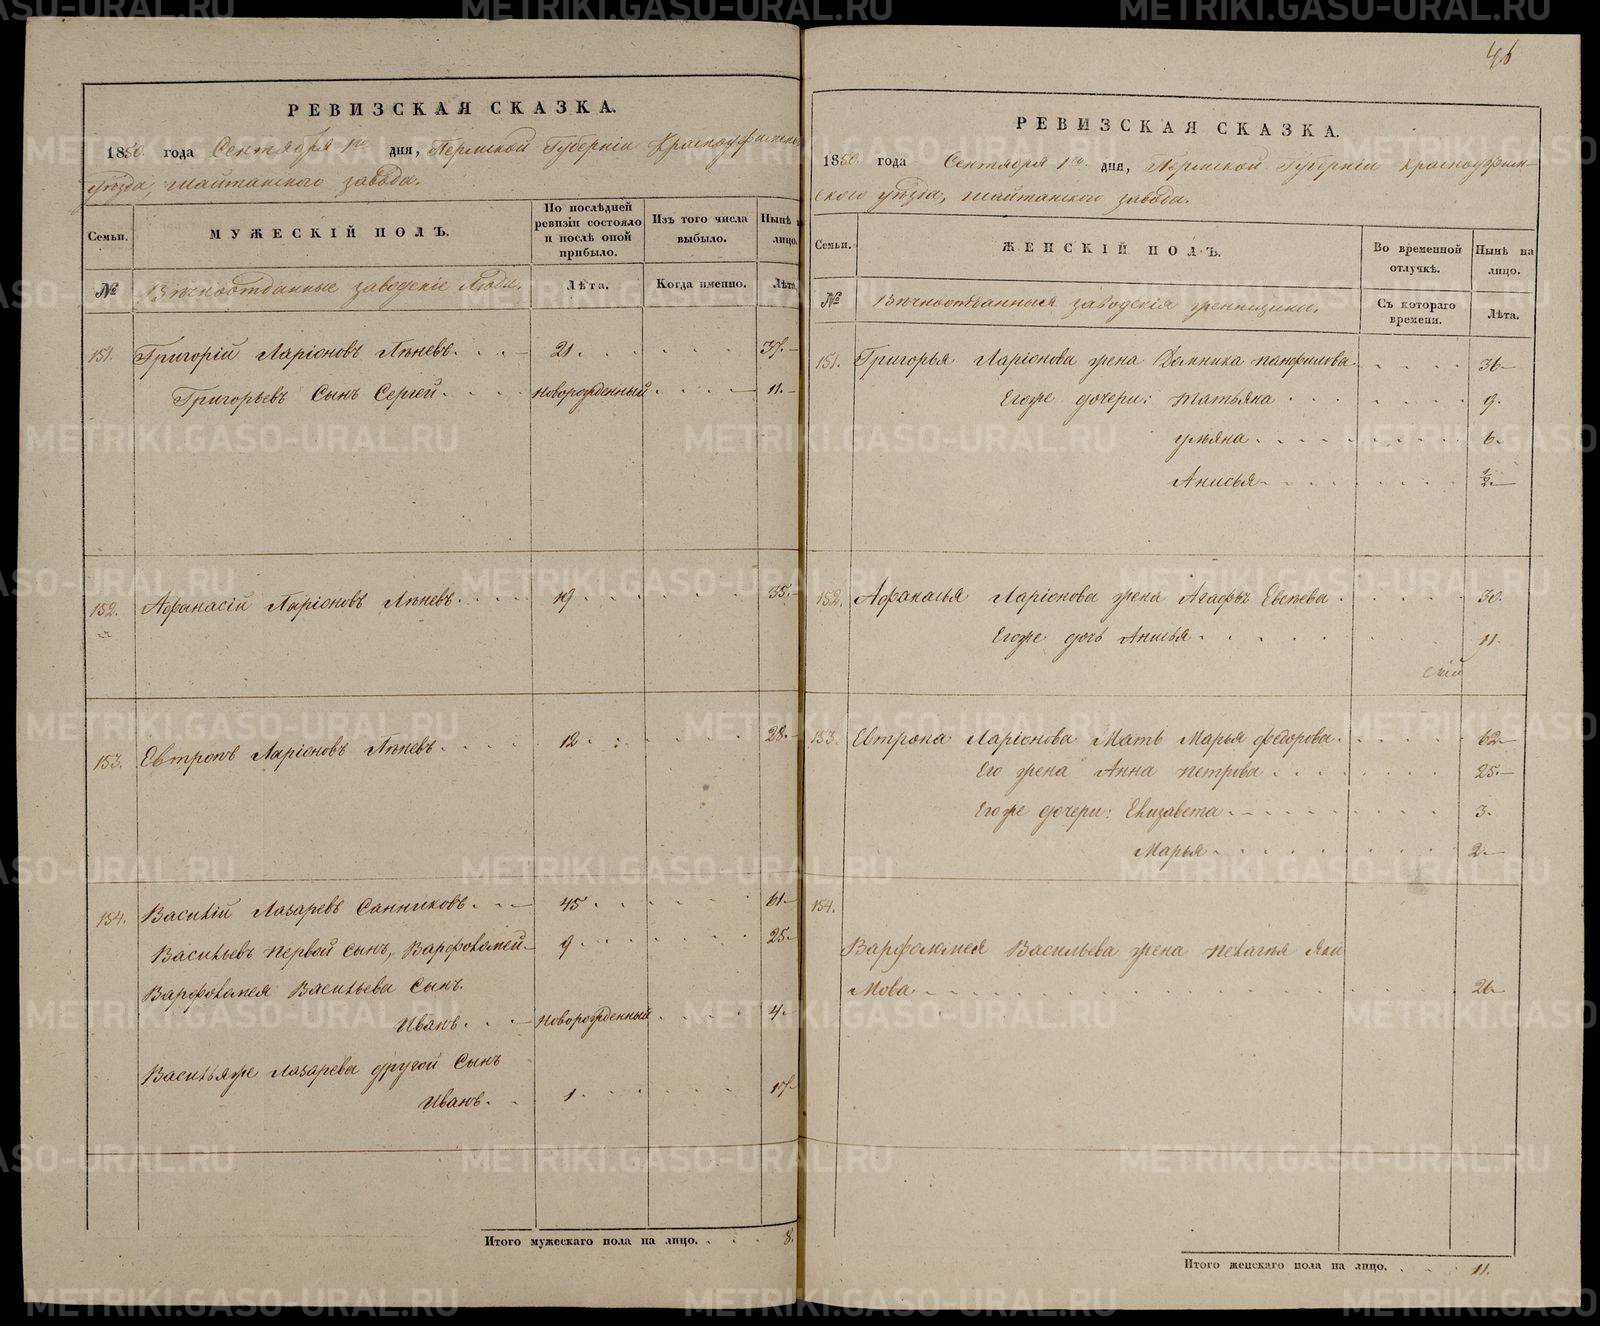 46
РЕВИЗСКАЯ СКАЗКА.
1850. года Сентября 1го дня, Пермской Губерніи Красноуфимскаго
уѣзда, Шайтанского завода.
Семьи.
МУЖЕСКІЙ ПОЛЪ.
По послѣдней ревизіи состояло и послѣ оной прибыло.
Изъ того числа выбыло.
Нынѣ на лицо.
№
Вѣчноотданные заводскіе Люди.
Лѣта.
Когда именно.
Лѣта.
151. Григорій Ларіоновъ Пѣневъ. 21. 37.
Григорьевъ Сынъ Сергей. Новорожденный 11.
152. Афанасій Ларіоновъ Пѣневъ. 19. 35.
153. Евтропъ Ларіоновъ Пѣневъ. 12. 28.
154. Василій Лазаревъ Санниковъ. 45. 61.
Васильевъ первой сынъ, Варфоломей 9. 25.
Варфоломея Васильева Сынъ
Иванъ. Новорожденный 4.
Васильяже Лазарева другой Сынъ
Иванъ. 1. 17.
Итого мужескаго пола на лицо. 8.
РЕВИЗСКАЯ СКАЗКА.
1850. года Сентября 1го. дня, Пермской Губерніи Красноуфим-
ского уѣзда, Шайтанского завода.
Семьи.
ЖЕНСКІЙ ПОЛЪ.
Во временной отлучкѣ.
Нынѣ на лицо.
№
Вѣчноотданныя заводскія женщины.
Съ котораго времени.
Лѣта.
151. Григорья Ларіонова жена Домника Панфилова. 36
Егоже дочери: Татьяна 9.
Ульяна. 6.
Анисья 1/2.
152. Афанасья Ларіонова жена Агафья Евсѣева. 30.
Егоже дочь Анисья. 11.
153. Евтропа Ларіонова Мать Марья Федорова. 62
Его жена Анна Петрова 25.
Егоже дочери: Елизавета 3.
Марья 2
154.
Варфоломея Васильева жена Пелагея Яки
мова 26
Итого женскаго пола на лицо. 11.
METRIKI.GASO-URAL.RU